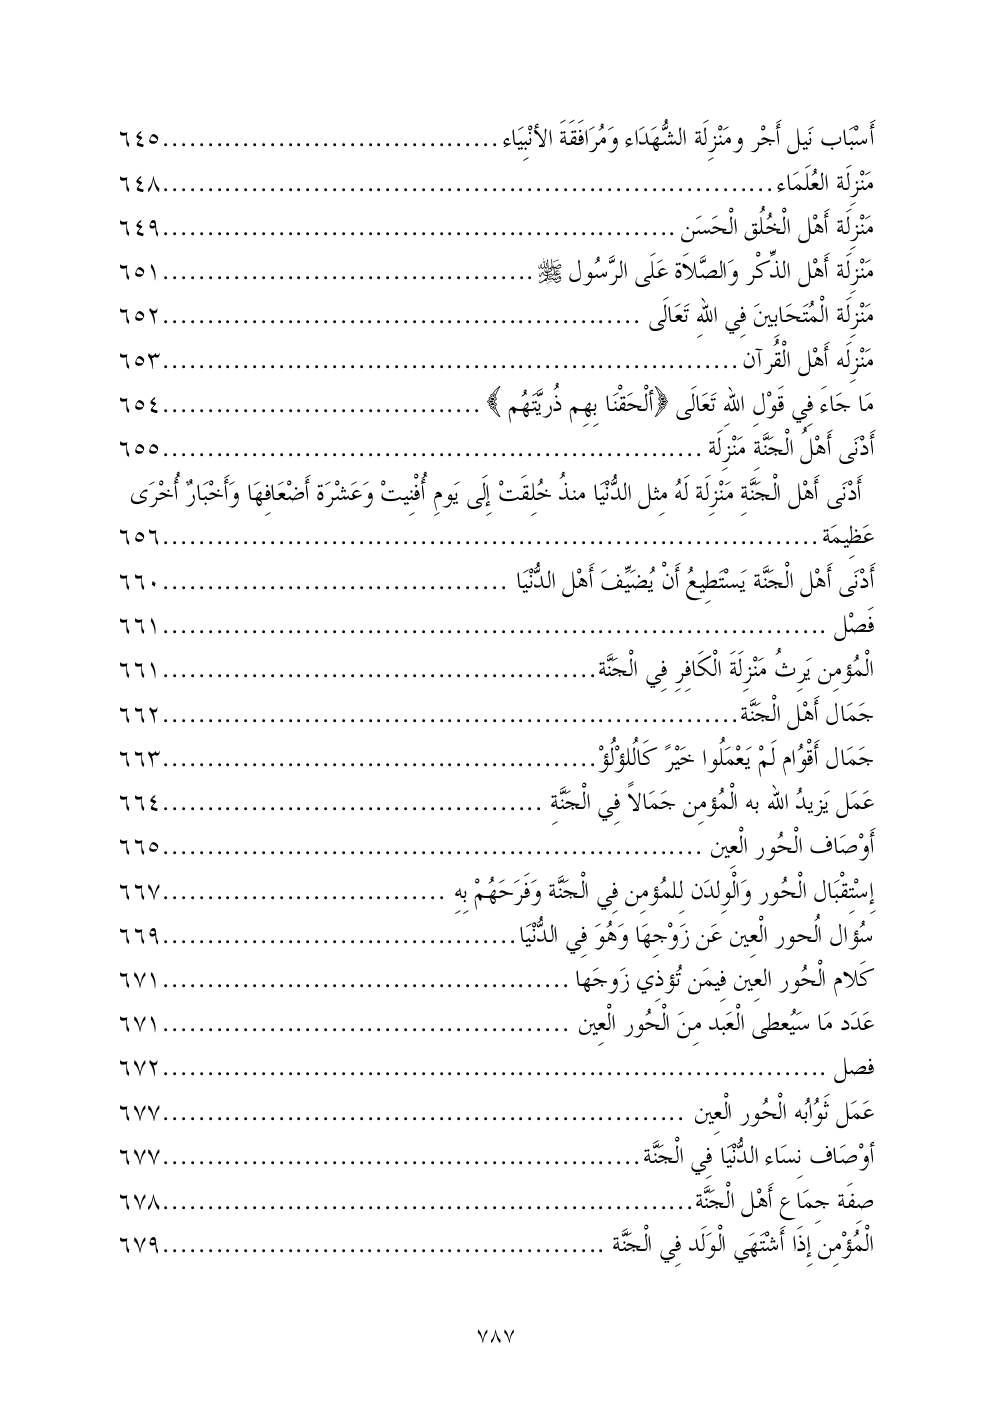 أَسْبَاب نَيل أَجْر ومَنْزِلَة الشُّهَدَاء وَمُرَافَقَةَ الأنْبِيَاء.....................................٦٤٥
مَنْزِلَة العُلَمَاء....................................................................٦٤٨
مَنْزِلَة أَهْل الْخُلُق الْحَسَن .........................................................٦٤٩
مَنْزِلَة أَهْل الذِّكْر وَالصَّلاَة عَلَى الرَّسُول ﷺ .........................................٦٥١
مَنْزِلَة الْمُتَحَابِينَ فِي اللهِ تَعَالَى .....................................................٦٥٢
مَنْزِلَه أَهْل الْقُرآن................................................................٦٥٣
مَا جَاءَ فِي قَوْلِ اللهِ تَعَالَى ﴿أَلْحَقْنَا بِهِم ذُرِيَّتَهُم ﴾ ...................................٦٥٤
أَدْنَى أَهْلُ الْجَنَّةِ مَنْزِلَة ............................................................٦٥٥
أَدْنَى أَهْل الْجَنَّةِ مَنْزِلَة لَهُ مِثل الدُّنْيَا منذُ خُلِقَتْ إِلَى يَومِ أُفْنِيتْ وَعَشْرَة أَضْعَافِهَا وَأَخْبَارٌ أُخْرَى
عَظِيمَة.........................................................................٦٥٦
أَدْنَى أَهْل الْجَنَّة يَسْتَطِيعُ أَنْ يُضَيِّفَ أَهْل الدُّنْيَا ......................................٦٦٠
فَصْل ..........................................................................٦٦١
الْمُؤمِن يَرِثُ مَنْزِلَةَ الْكَافِرِ فِي الْجَنَّة................................................٦٦١
جَمَال أَهْل الْجَنَّة................................................................٦٦٢
جَمَال أَقْوُام لَمْ يَعْمَلُوا خَيْرً كَالُلؤْلُؤْ................................................٦٦٣
عَمَل يَزيدُ الله به الْمُؤمِن جَمَالاً فِي الْجَنَّةِ ..........................................٦٦٤
أَوْصَاف الْحُور الْعِين ............................................................٦٦٥
إِسْتِقْبَال الْحُور وَالْوِلدَن لِلمُؤمِن فِي الْجَنَّة وَفَرَحَهُمْ بِهِ ................................٦٦٧
سُؤال الُحور الْعِين عَن زَوْجِهَا وَهُوَ فِي الدُّنْيَا.......................................٦٦٩
كَلام الْحُور العِين فِيمَن تُؤذِي زَوجَها .............................................٦٧١
عَدَد مَا سَيُعطى الْعَبد مِنَ الْحُور الْعِين .............................................٦٧١
فصل ..........................................................................٦٧٢
عَمَل ثَوُابُه الْحُور الْعِين ..........................................................٦٧٧
أوْصَاف نِسَاء الدُّنْيَا فِي الْجَنَّة.....................................................٦٧٧
صِفَة جِمَاع أَهْل الْجَنَّة...........................................................٦٧٨
الْمُؤْمِن إِذَا أَشْتَهَي الْوَلَد فِي الْجَنَّة .................................................٦٧٩
٧٨٧